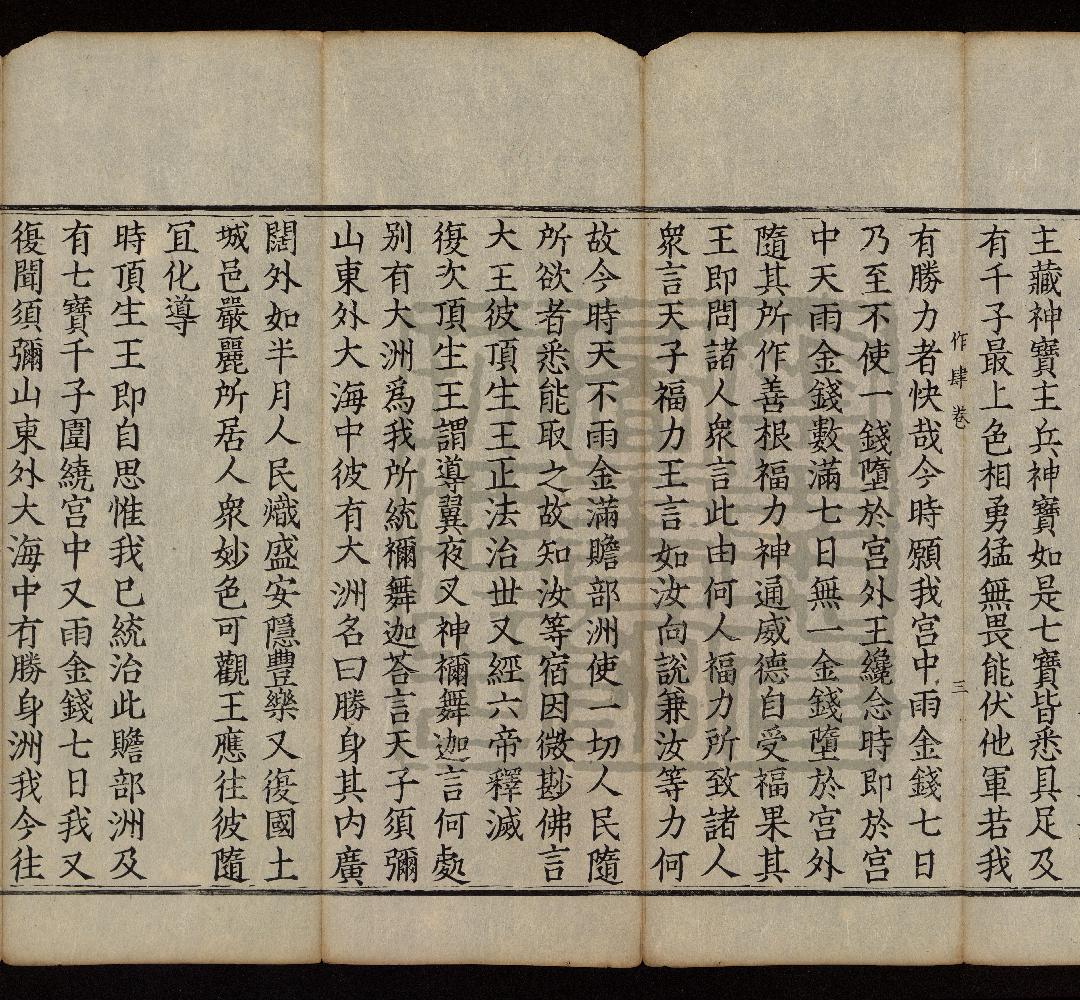 主藏神寶主兵神寶如是七寶皆悉具足及
有千子最上色相勇猛無畏能伏他軍若我
作肆卷 三
有勝力者快哉今時願我宮中雨金錢七日
乃至不使一錢墮於宮外王纔念時即於宮
中天雨金錢數滿七日無一金錢墮於宮外
隨其所作善根福力神通威德自受福果其
王即問諸人衆言此由何人福力所致諸人
衆言天子福力王言如汝向說兼汝等力何
故今時天不雨金滿贍部洲使一切人民隨
所欲者悉能取之故知汝等宿因微尠佛言
大王彼頂生王正法治世又經六帝釋滅
復次頂生王謂導翼夜叉神禰舞迦言何處
別有大洲爲我所統禰舞迦荅言天子須彌
山東外大海中彼有大洲名曰勝身其内廣
闊外如半月人民熾盛安隱豐樂又復國土
城邑嚴麗所居人衆妙色可觀王應往彼隨
冝化導
時頂生王即自思惟我已統治此贍部洲及
有七寶千子圍繞宮中又雨金錢七日我又
復聞須彌山東外大海中有勝身洲我今往